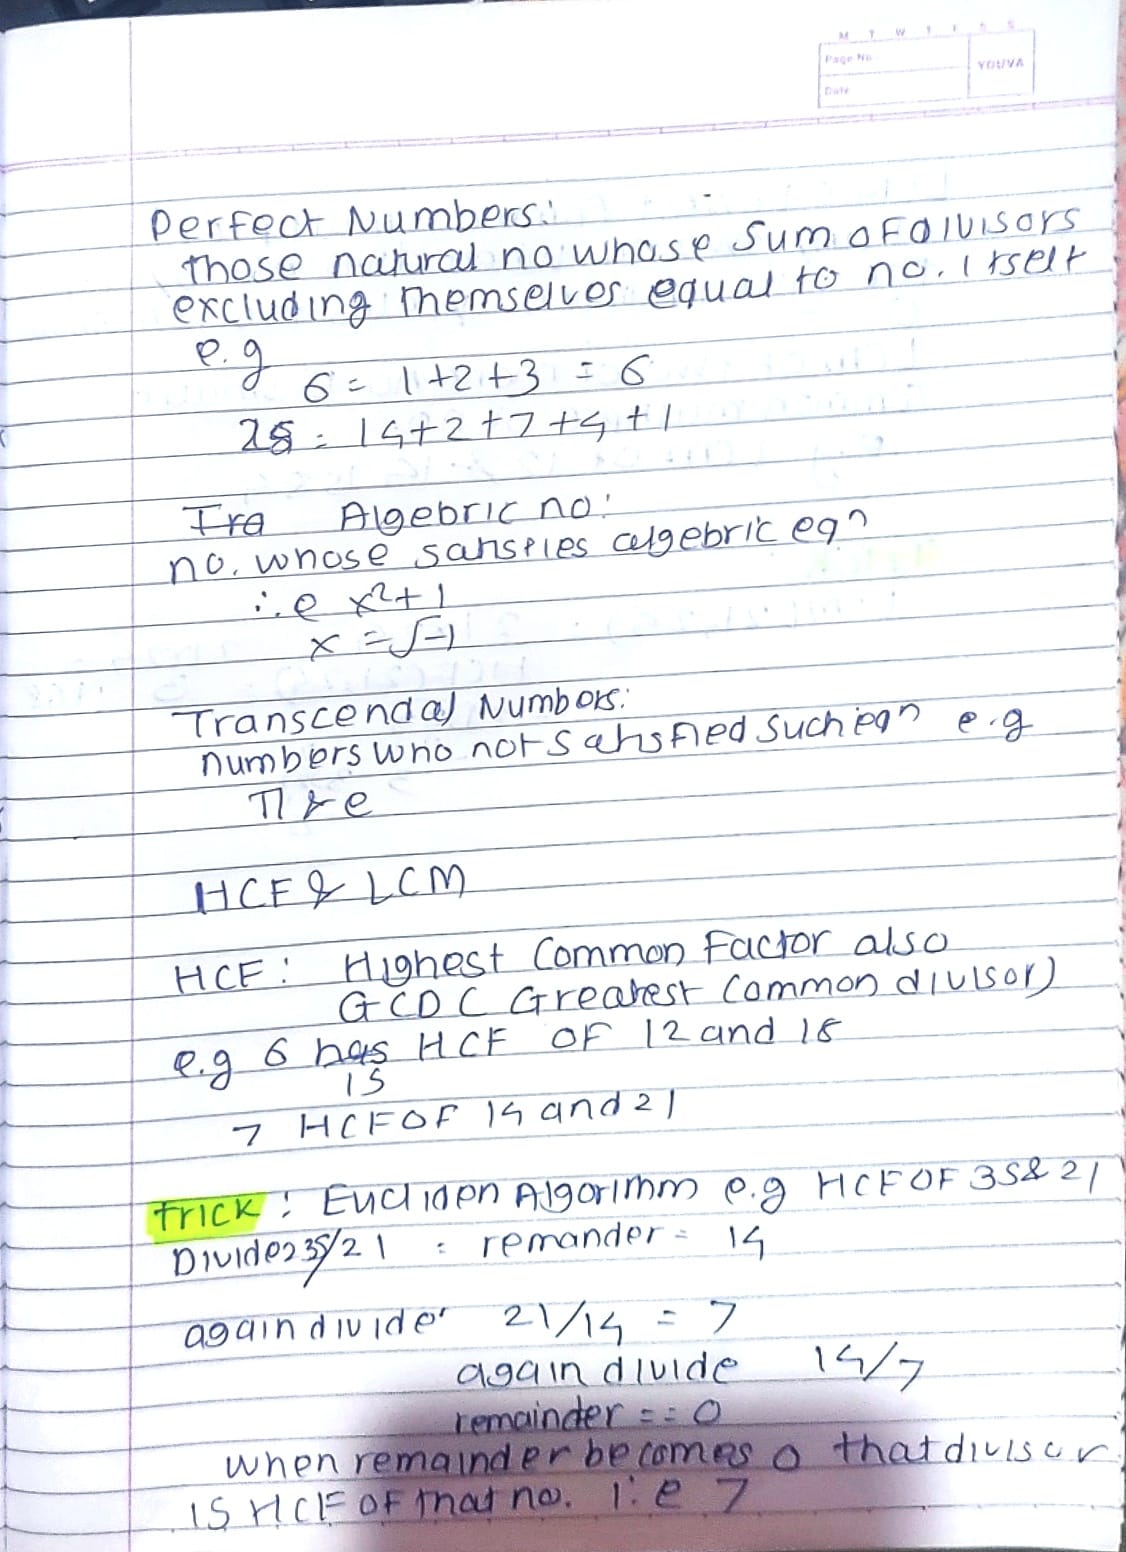 M T W T F S S
Page No
YOUVA
Date
Perfect Numbers:
Those natural no whose sum of divisors
excluding themselves equal to no. itself
e.g
6 = 1+2+3 = 6
28 = 14+2+7+4+1
Algebric no:
no. whose satisfies algebric eqn
i.e x²+1
x = √-1
Transcendal Numbers:
numbers who not satisfied such eqn e.g
π & e
HCF & LCM
HCF: Highest Common Factor also
GCD ( Greatest Common divisor)
e.g 6 has HCF OF 12 and 18
is
7 HCF OF 14 and 21
Trick: Euclidean Algorithm e.g HCF OF 35 & 21
Divide 35/21 : remander = 14
again divide 21/14 = 7
again divide 14/7
remainder == 0
when remainder becomes 0 that divisor
is HCF OF that no. i.e 7